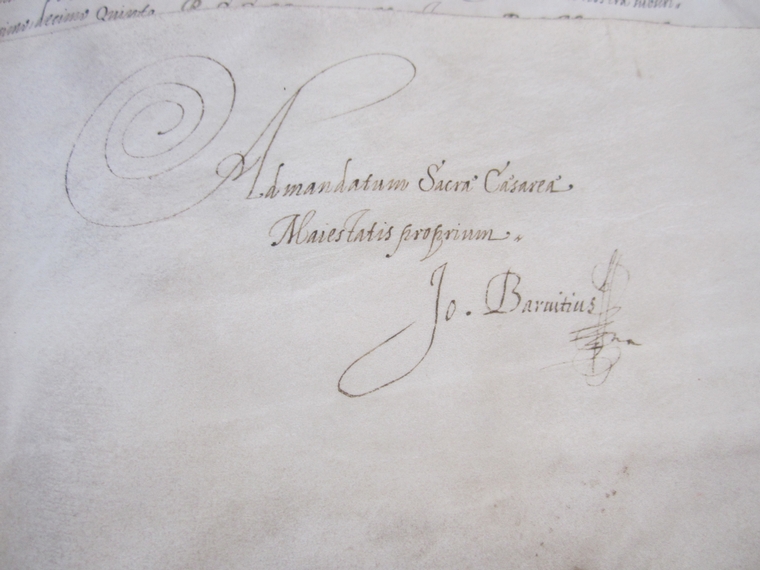 decimo Quinto
Ad mandatum Sacræ Cæsareæ
Maiestatis proprium.
Jo. Barvitius